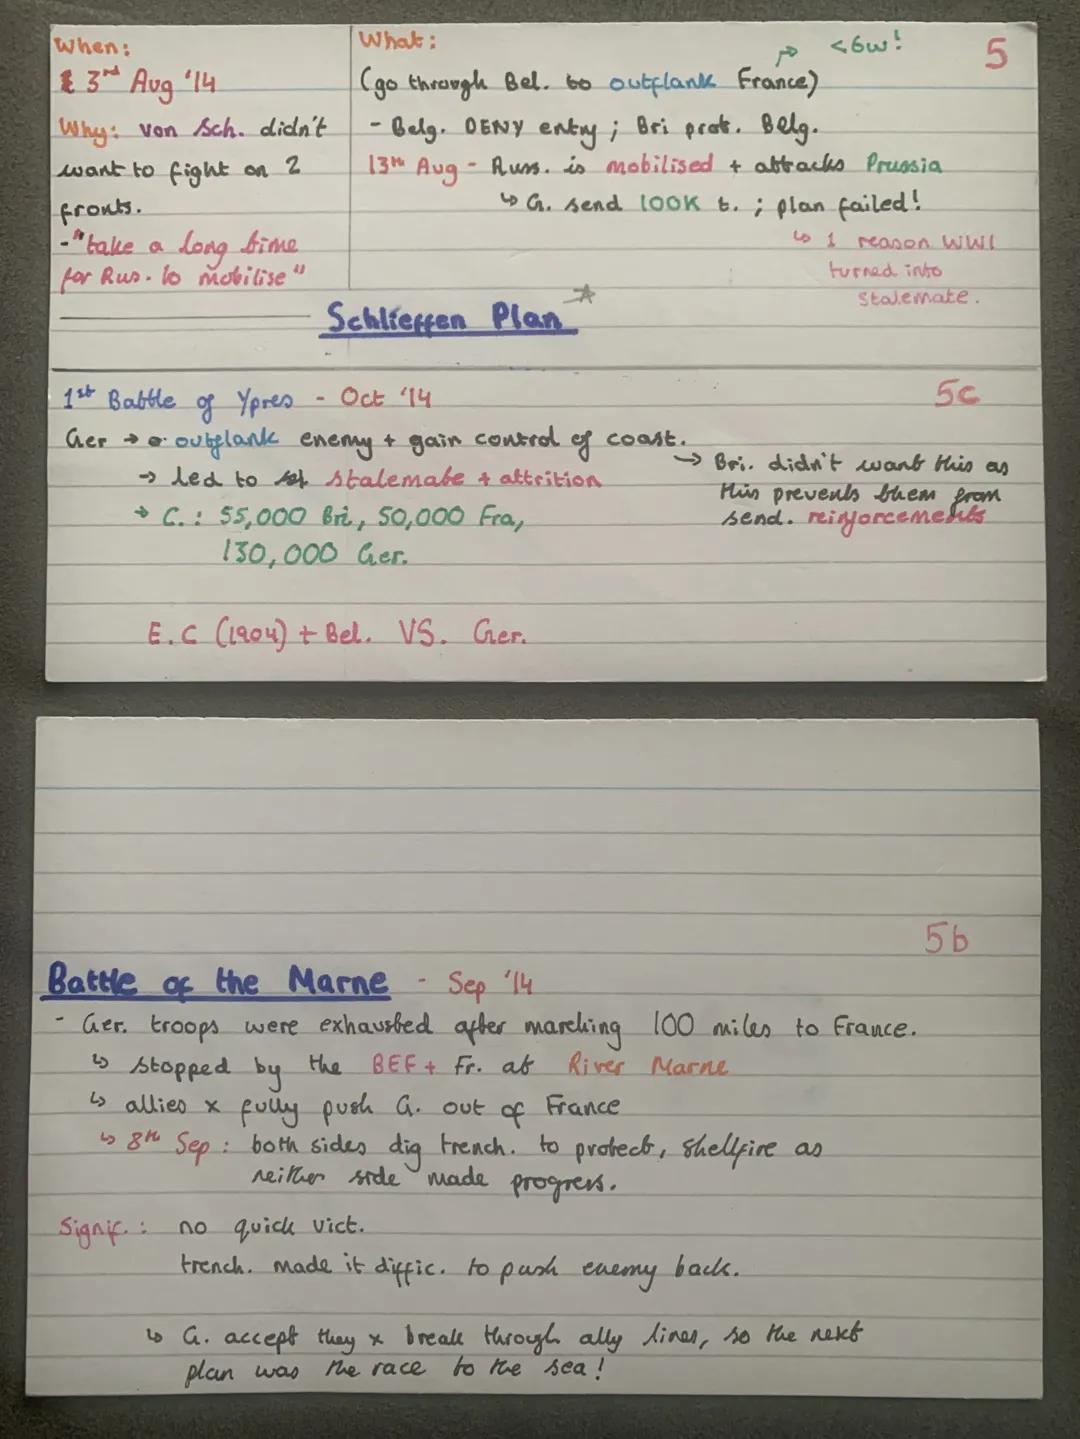 When:
3rd Aug '14
Why: von Sch. didn't
want to fight on 2
fronts.
- "take a long time
for Rus. to mobilise"
What:
<6w!
5
(go through Bel. to outflank France)
- Belg. DENY entry; Bri prot. Belg.
13th Aug - Russ. is mobilised + attacks Prussia
↳ G. send 100K t. ; plan failed!
↳ 1 reason WW1
turned into
stalemate.
Schlieffen Plan
1st Battle of Ypres - Oct '14
5c
Ger → outflank enemy + gain control of coast.
→ Bri. didn't want this as
this prevents them from
send. reinforcements
→ led to stalemate + attrition
→ C.: 55,000 Bri, 50,000 Fra,
130,000 Ger.
E.C (1904) + Bel. VS. Ger.
5b
Battle of the Marne - Sep '14
- Ger. troops were exhausted after marching 100 miles to France.
↳ stopped by the BEF + Fr. at River Marne
↳ allies x fully push G. out of France
↳ 8th Sep: both sides dig trench. to protect, shellfire as
neither side made progress.
Signif.: no quick vict.
trench. made it diffic. to push enemy back.
↳ G. accept they x break through ally lines, so the next
plan was the race to the sea!